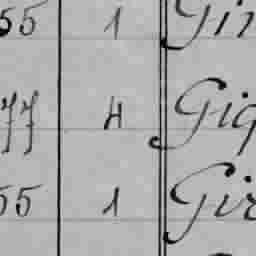 55 1 Gir
77 4 Giq
55 1 Gir